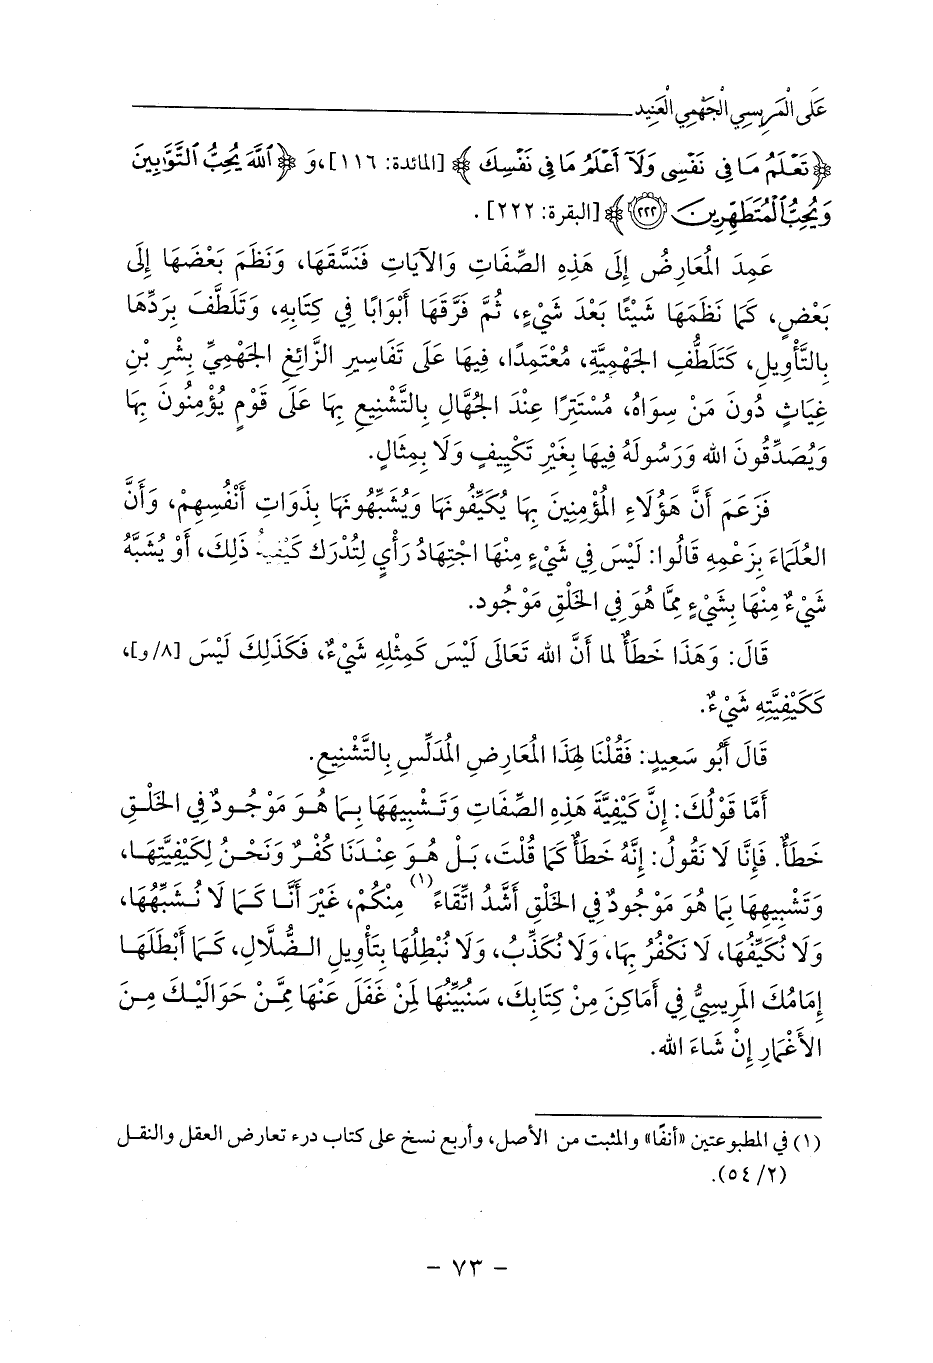 عَلَى الْمَرِيسِي الْجَهْمِي الْعَنِيد
﴿تَعْلَمُ مَا فِي نَفْسِي وَلَآ أَعْلَمُ مَا فِي نَفْسِكَ﴾ [المائدة: ١١٦]، وَ ﴿ٱللَّهَ يُحِبُّ ٱلتَّوَّٰبِينَ
وَيُحِبُّ ٱلْمُتَطَهِّرِينَ ٢٢٢﴾ [البقرة: ٢٢٢] .
عَمِدَ المُعَارِضُ إِلَى هَذِهِ الصِّفَاتِ وَالآيَاتِ فَنَسَّقَهَا، وَنَظَمَ بَعْضَهَا إِلَى
بَعْضٍ، كَمَا نَظَمَهَا شَيْئًا بَعْدَ شَيْءٍ، ثُمَّ فَرَّقَهَا أَبْوَابًا فِي كِتَابِهِ، وَتَلَطَّفَ بِرَدِّهَا
بِالتَّأْوِيلِ، كَتَلَطُّفِ الجَهْمِيَّةِ، مُعْتَمِدًا، فِيهَا عَلَى تَفَاسِيرِ الزَّائِغِ الجَهْمِيِّ بِشْرِ بْنِ
غِيَاثٍ دُونَ مَنْ سِوَاهُ، مُسْتَتِرًا عِنْدَ الجُهَّالِ بِالتَّشْنِيعِ بِهَا عَلَى قَوْمٍ يُؤْمِنُونَ بِهَا
وَيُصَدِّقُونَ الله وَرَسُولَهُ فِيهَا بِغَيْرِ تَكْيِيفٍ وَلَا بِمِثَالٍ.
فَزَعَمَ أَنَّ هَؤُلَاءِ المُؤْمِنِينَ بِهَا يُكَيِّفُونَهَا وَيُشَبِّهُونَهَا بِذَوَاتِ أَنْفُسِهِمْ، وَأَنَّ
العُلَمَاءَ بِزَعْمِهِ قَالُوا: لَيْسَ فِي شَيْءٍ مِنْهَا اجْتِهَادُ رَأْيٍ لِتُدْرَكَ كَيْفِيَّةُ ذَلِكَ، أَوْ يُشَبَّهُ
شَيْءٌ مِنْهَا بِشَيْءٍ مِمَّا هُوَ فِي الخَلْقِ مَوْجُود.
قَالَ: وَهَذَا خَطَأٌ لما أَنَّ الله تَعَالَى لَيْسَ كَمِثْلِهِ شَيْءٌ، فَكَذَلِكَ لَيْسَ [٨/و]،
كَكَيْفِيَّتِهِ شَيْءٌ.
قَالَ أَبُو سَعِيدٍ: فَقُلْنَا لِهَذَا المُعَارِضِ المُدَلِّسِ بِالتَّشْنِيعِ.
أَمَّا قَوْلُكَ: إِنَّ كَيْفِيَّةَ هَذِهِ الصِّفَاتِ وَتَشْبِيهَهَا بِمَا هُوَ مَوْجُودٌ فِي الخَلْقِ
خَطَأٌ. فَإِنَّا لَا نَقُولُ: إِنَّهُ خَطَأٌ كَمَا قُلْتَ، بَلْ هُوَ عِنْدَنَا كُفْرٌ وَنَحْنُ لِكَيْفِيَّتِهَا،
وَتَشْبِيهِهَا بِمَا هُوَ مَوْجُودٌ فِي الخَلْقِ أَشَدُّ اتِّقَاءً(١) مِنْكُمْ، غَيْرَ أَنَّا كَمَا لَا نُشَبِّهُهَا،
وَلَا نُكَيِّفُهَا، لَا نَكْفُرُ بِهَا، وَلَا نُكَذِّبُ، وَلَا نُبْطِلُهَا بِتَأْوِيلِ الضُّلَّالِ، كَمَا أَبْطَلَهَا
إِمَامُكَ المَرِيسِيُّ فِي أَمَاكِنَ مِنْ كِتَابِكَ، سَنُبَيِّنُهَا لِمَنْ غَفَلَ عَنْهَا مِمَّنْ حَوَالَيْكَ مِنَ
الأَغْمَارِ إِنْ شَاءَ الله.
(١) في المطبوعتين «أنفًا» والمثبت من الأصل، وأربع نسخ على كتاب درء تعارض العقل والنقل
(٢/ ٥٤).
- ٧٣ -